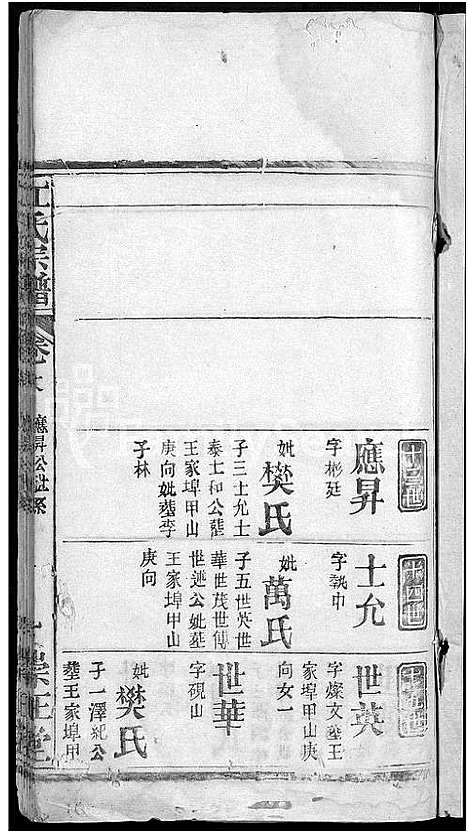 十三世
應昇
字彬廷
妣樊氏
子三士允士
泰士和公塟
王家埠甲山
庚向妣塟李
子林
十四世
士允
字執中
妣萬氏
子五世英世
華世茂世傅
世逑公妣塟
王家埠甲山
庚向
十五世
世英
字燦文塟王
家埠甲山庚
向女一
世華
字硯山
妣樊氏
子一澤紀公
塟王家埠甲
氏宗譜
應昇公世系
崇正堂